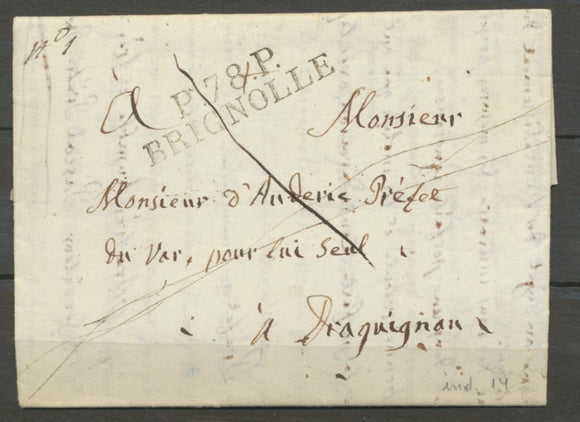 n° 1
P.78.P.
BRIGNOLLE
A Monsieur
Monsieur d'Anderic Préfet
du Var, pour lui Seul
à Draguignan
ind. 14